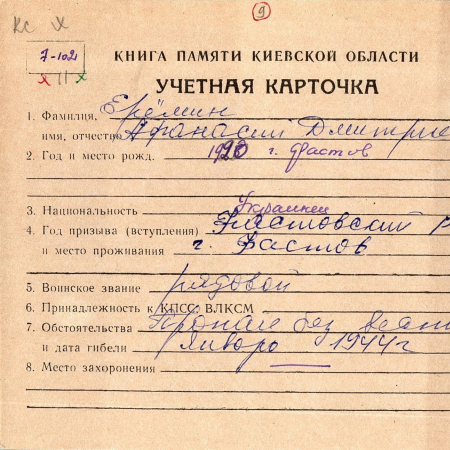 9
КС X
7-102
X II X
КНИГА ПАМЯТИ КИЕВСКОЙ ОБЛАСТИ
УЧЕТНАЯ КАРТОЧКА
1. Фамилия, Ерёмин
имя, отчество Афанасий Дмитрие
2. Год и место рожд. 1920 г. Фастов
3. Национальность Украинец
4. Год призыва (вступления) Фастовский Р
и место проживания г. Фастов
5. Воинское звание рядовой
6. Принадлежность к КПСС, ВЛКСМ
7. Обстоятельства Пропал без вест
и дата гибели январь 1944 г
8. Место захоронения